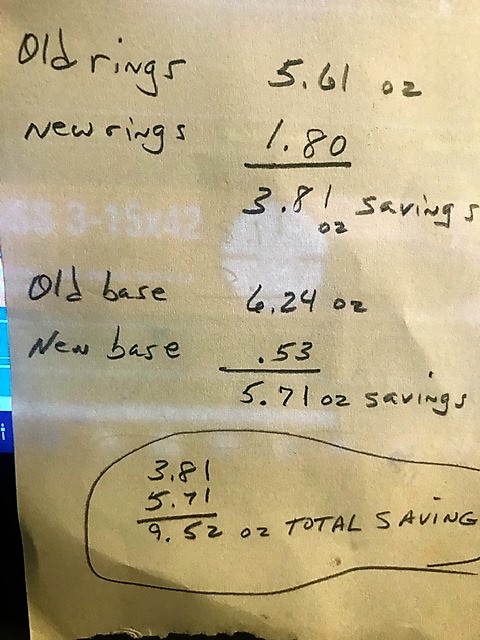 Old rings 5.61 oz
New rings 1.80
3.81 oz savings
SS 3-15x42
Old base 6.24 oz
New base .53
5.71 oz savings
3.81
5.71
9.52 oz TOTAL SAVING